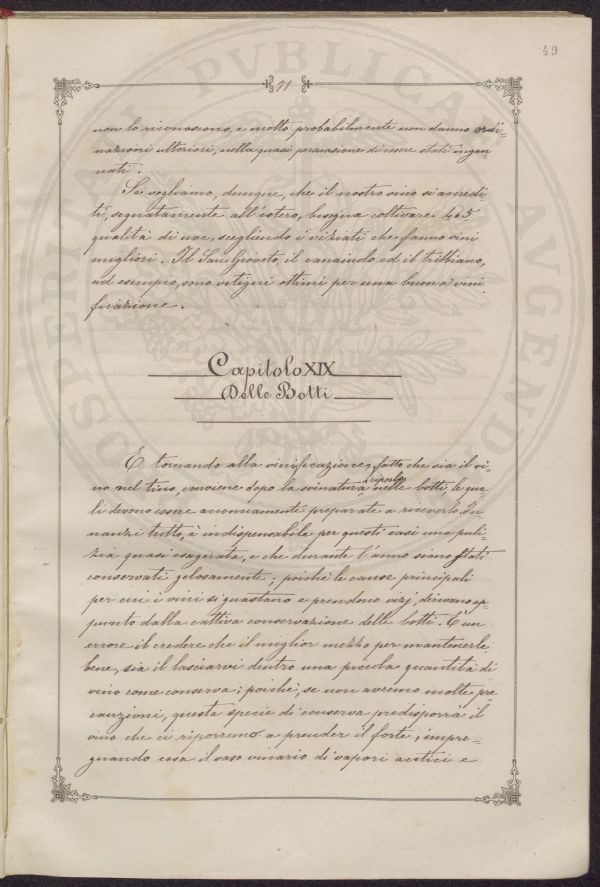 49
91
non lo riconoscono, e molto probabilmente non danno ordi=
nazioni ulteriori, nella quasi persuasione di essere stati ingan=
nati.
Se vogliamo, dunque, che il nostro vino si accredi=
ti, segnatamente all'estero, bisogna coltivare 4 o 5
qualità di uve, scegliendo i viziati che fanno vini
migliori. Il San Gioveto, il canaiolo ed il tribbiano,
ad esempio, sono vitigni ottimi per una buona vini
ficazione.
Capitolo XIX
Delle Botti
E tornando alla vinificazione, fatto che sia il vi=
no nel tino, conviene dopo la svinatura, riporlo nelle botti, le qua=
li devono essere acconciamente preparate a riceverlo. In=
nanzi tutto, è indispensabile per questi vasi una puli=
zia quasi esagerata, e che durante l'anno siano stati
conservati gelosamente; poichè le cause principali
per cui i vini si guastano e prendono vizj, derivano ap=
punto dalla cattiva conservazione delle botti. È un
errore il credere che il miglior mezzo per mantenerle
bene, sia il lasciarvi dentro una piccola quantità di
vino come conserva; poichè, se non avremo molte pre=
cauzioni, questa specie di conserva predisporrà il
vino che ci riporremo a prender il forte, impre=
gnando essa il vaso vinario di vapori acetici e
OSPEDIALI PVBLICAE AVGENDO